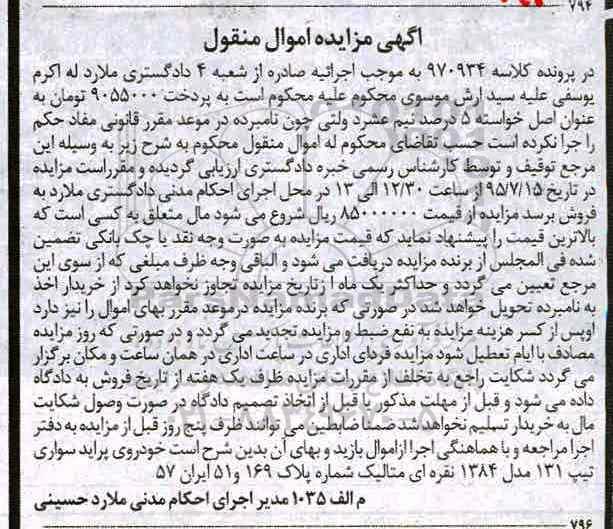 ۷۹۴
آگهی مزایده اموال منقول
در پرونده کلاسه ۹۷۰۹۳۴ به موجب اجرائیه صادره از شعبه ۴ دادگستری ملارد له اکرم
یوسفی علیه سید آرش موسوی محکوم علیه محکوم است به پرداخت ۹۰۵۵۰۰۰ تومان به
عنوان اصل خواسته ۵ درصد نیم عشر د ولتی چون نامبرده در موعد مقرر قانونی مفاد حکم
را جرا نکرده است حسب تقاضای محکوم له اموال منقول محکوم به شرح زیر به وسیله این
مرجع توقیف و توسط کارشناس رسمی خبره دادگستری ارزیابی گردیده و مقرراست مزایده
در تاریخ ۹۵/۷/۱۵ از ساعت ۱۲/۳۰ الی ۱۳ در محل اجرای احکام مدنی دادگستری ملارد به
فروش برسد مزایده از قیمت ۸۵۰۰۰۰۰۰ ریال شروع می شود مال متعلق به کسی است که
بالاترین قیمت را پیشنهاد نماید که قیمت مزایده به صورت وجه نقد یا چک بانکی تضمین
شده فی المجلس از برنده مزایده دریافت می شود و الباقی وجه ظرف مبلغی که از سوی این
مرجع تعیین می گردد و حداکثر یک ماه از تاریخ مزایده تجاوز نخواهد کرد از خریدار اخذ
به نامبرده تحویل خواهد شد در صورتی که برنده مزایده درموعد مقرر بهای اموال را نیز دارد
اوپس از کسر هزینه مزایده به نفع ضبط و مزایده تجدید می گردد و در صورتی که روز مزایده
مصادف با ایام تعطیل شود مزایده فردای اداری در ساعت اداری در همان ساعت و مکان برگزار
می گردد شکایت راجع به تخلف از مقررات مزایده ظرف یک هفته از تاریخ فروش به دادگاه
داده می شود و قبل از مهلت مذکور یا قبل از اتخاذ تصمیم دادگاه در صورت وصول شکایت
مال به خریدار تسلیم نخواهد شد ضمنا ضابطین می توانند ظرف پنج روز قبل از مزایده به دفتر
اجرا مراجعه و با هماهنگی اجرا ازاموال بازید و بهای آن بدین شرح است خودروی پراید سواری
تیپ ۱۳۱ مدل ۱۳۸۴ نقره ای متالیک شماره پلاک ۱۶۹ و۵۱ ایران ۵۷
م الف ۱۰۳۵ مدیر اجرای احکام مدنی ملارد حسینی
۷۹۶